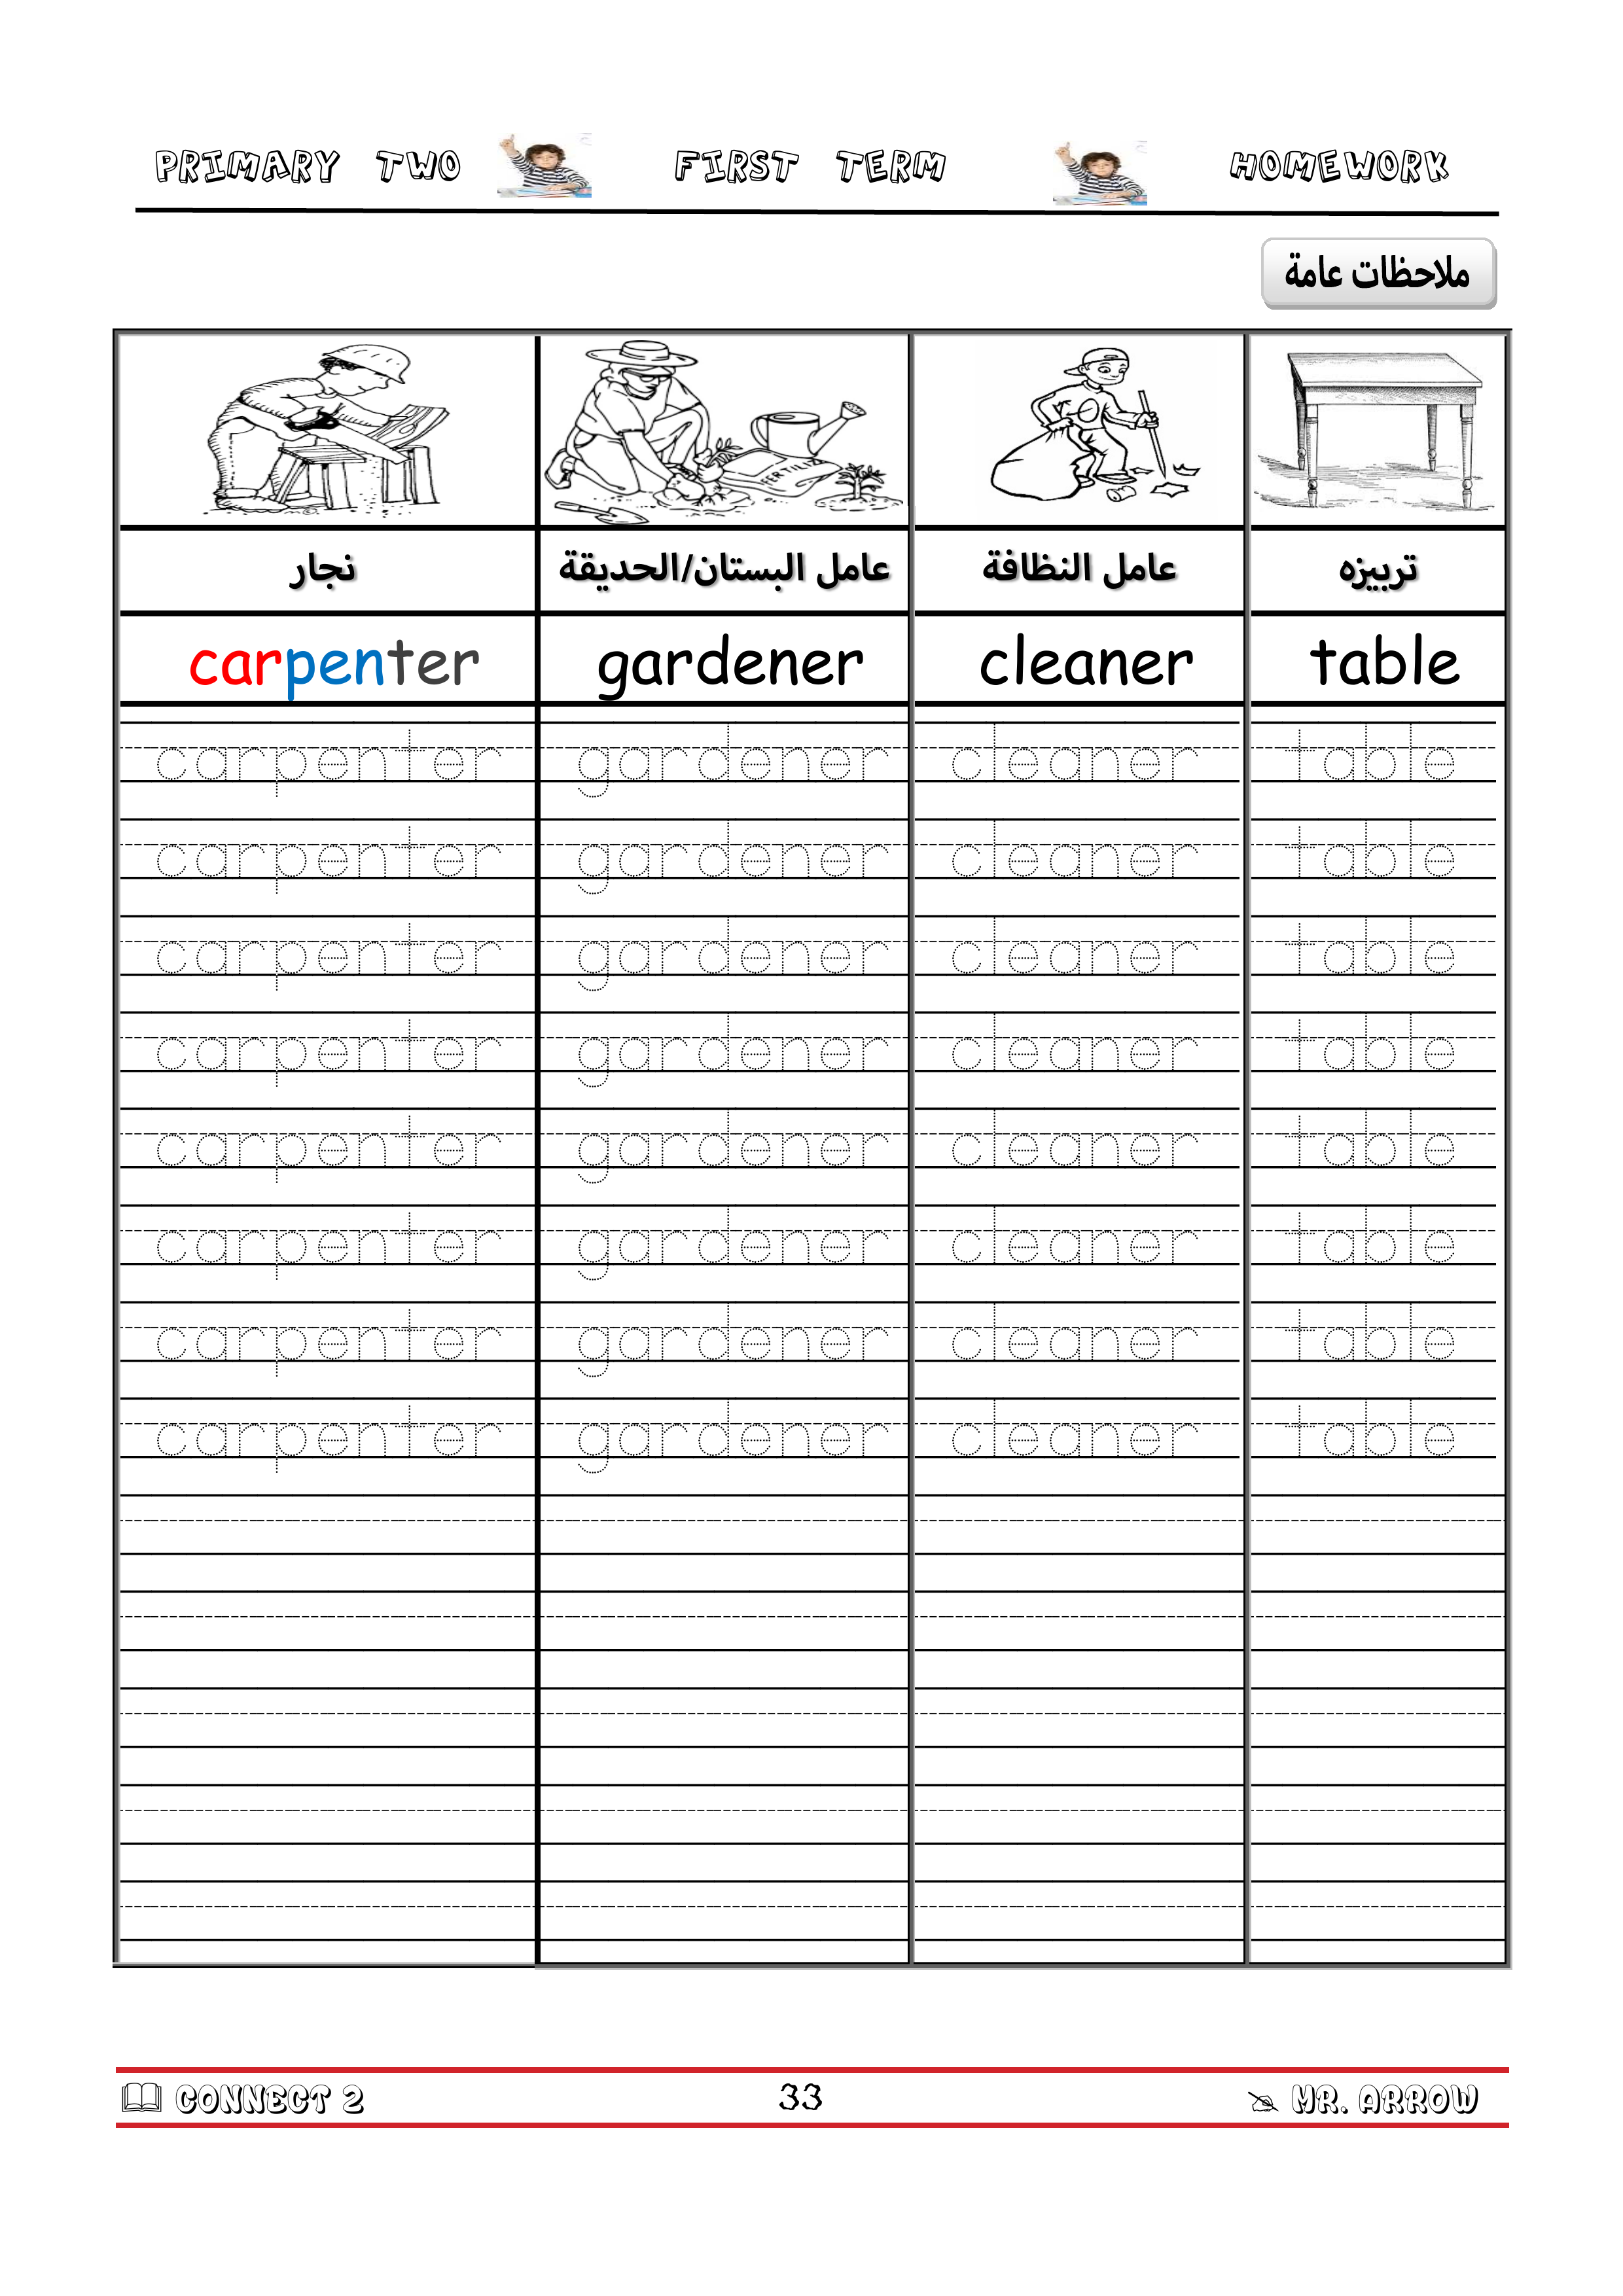 PRIMARY TWO FIRST TERM HOMEWORK
ملاحظات عامة
FERTILIZ
نجار عامل البستان/الحديقة عامل النظافة تربيزه
carpenter gardener cleaner table
carpenter gardener cleaner table
carpenter gardener cleaner table
carpenter gardener cleaner table
carpenter gardener cleaner table
carpenter gardener cleaner table
carpenter gardener cleaner table
carpenter gardener cleaner table
carpenter gardener cleaner table
CONNECT 2 33 MR. ARROW